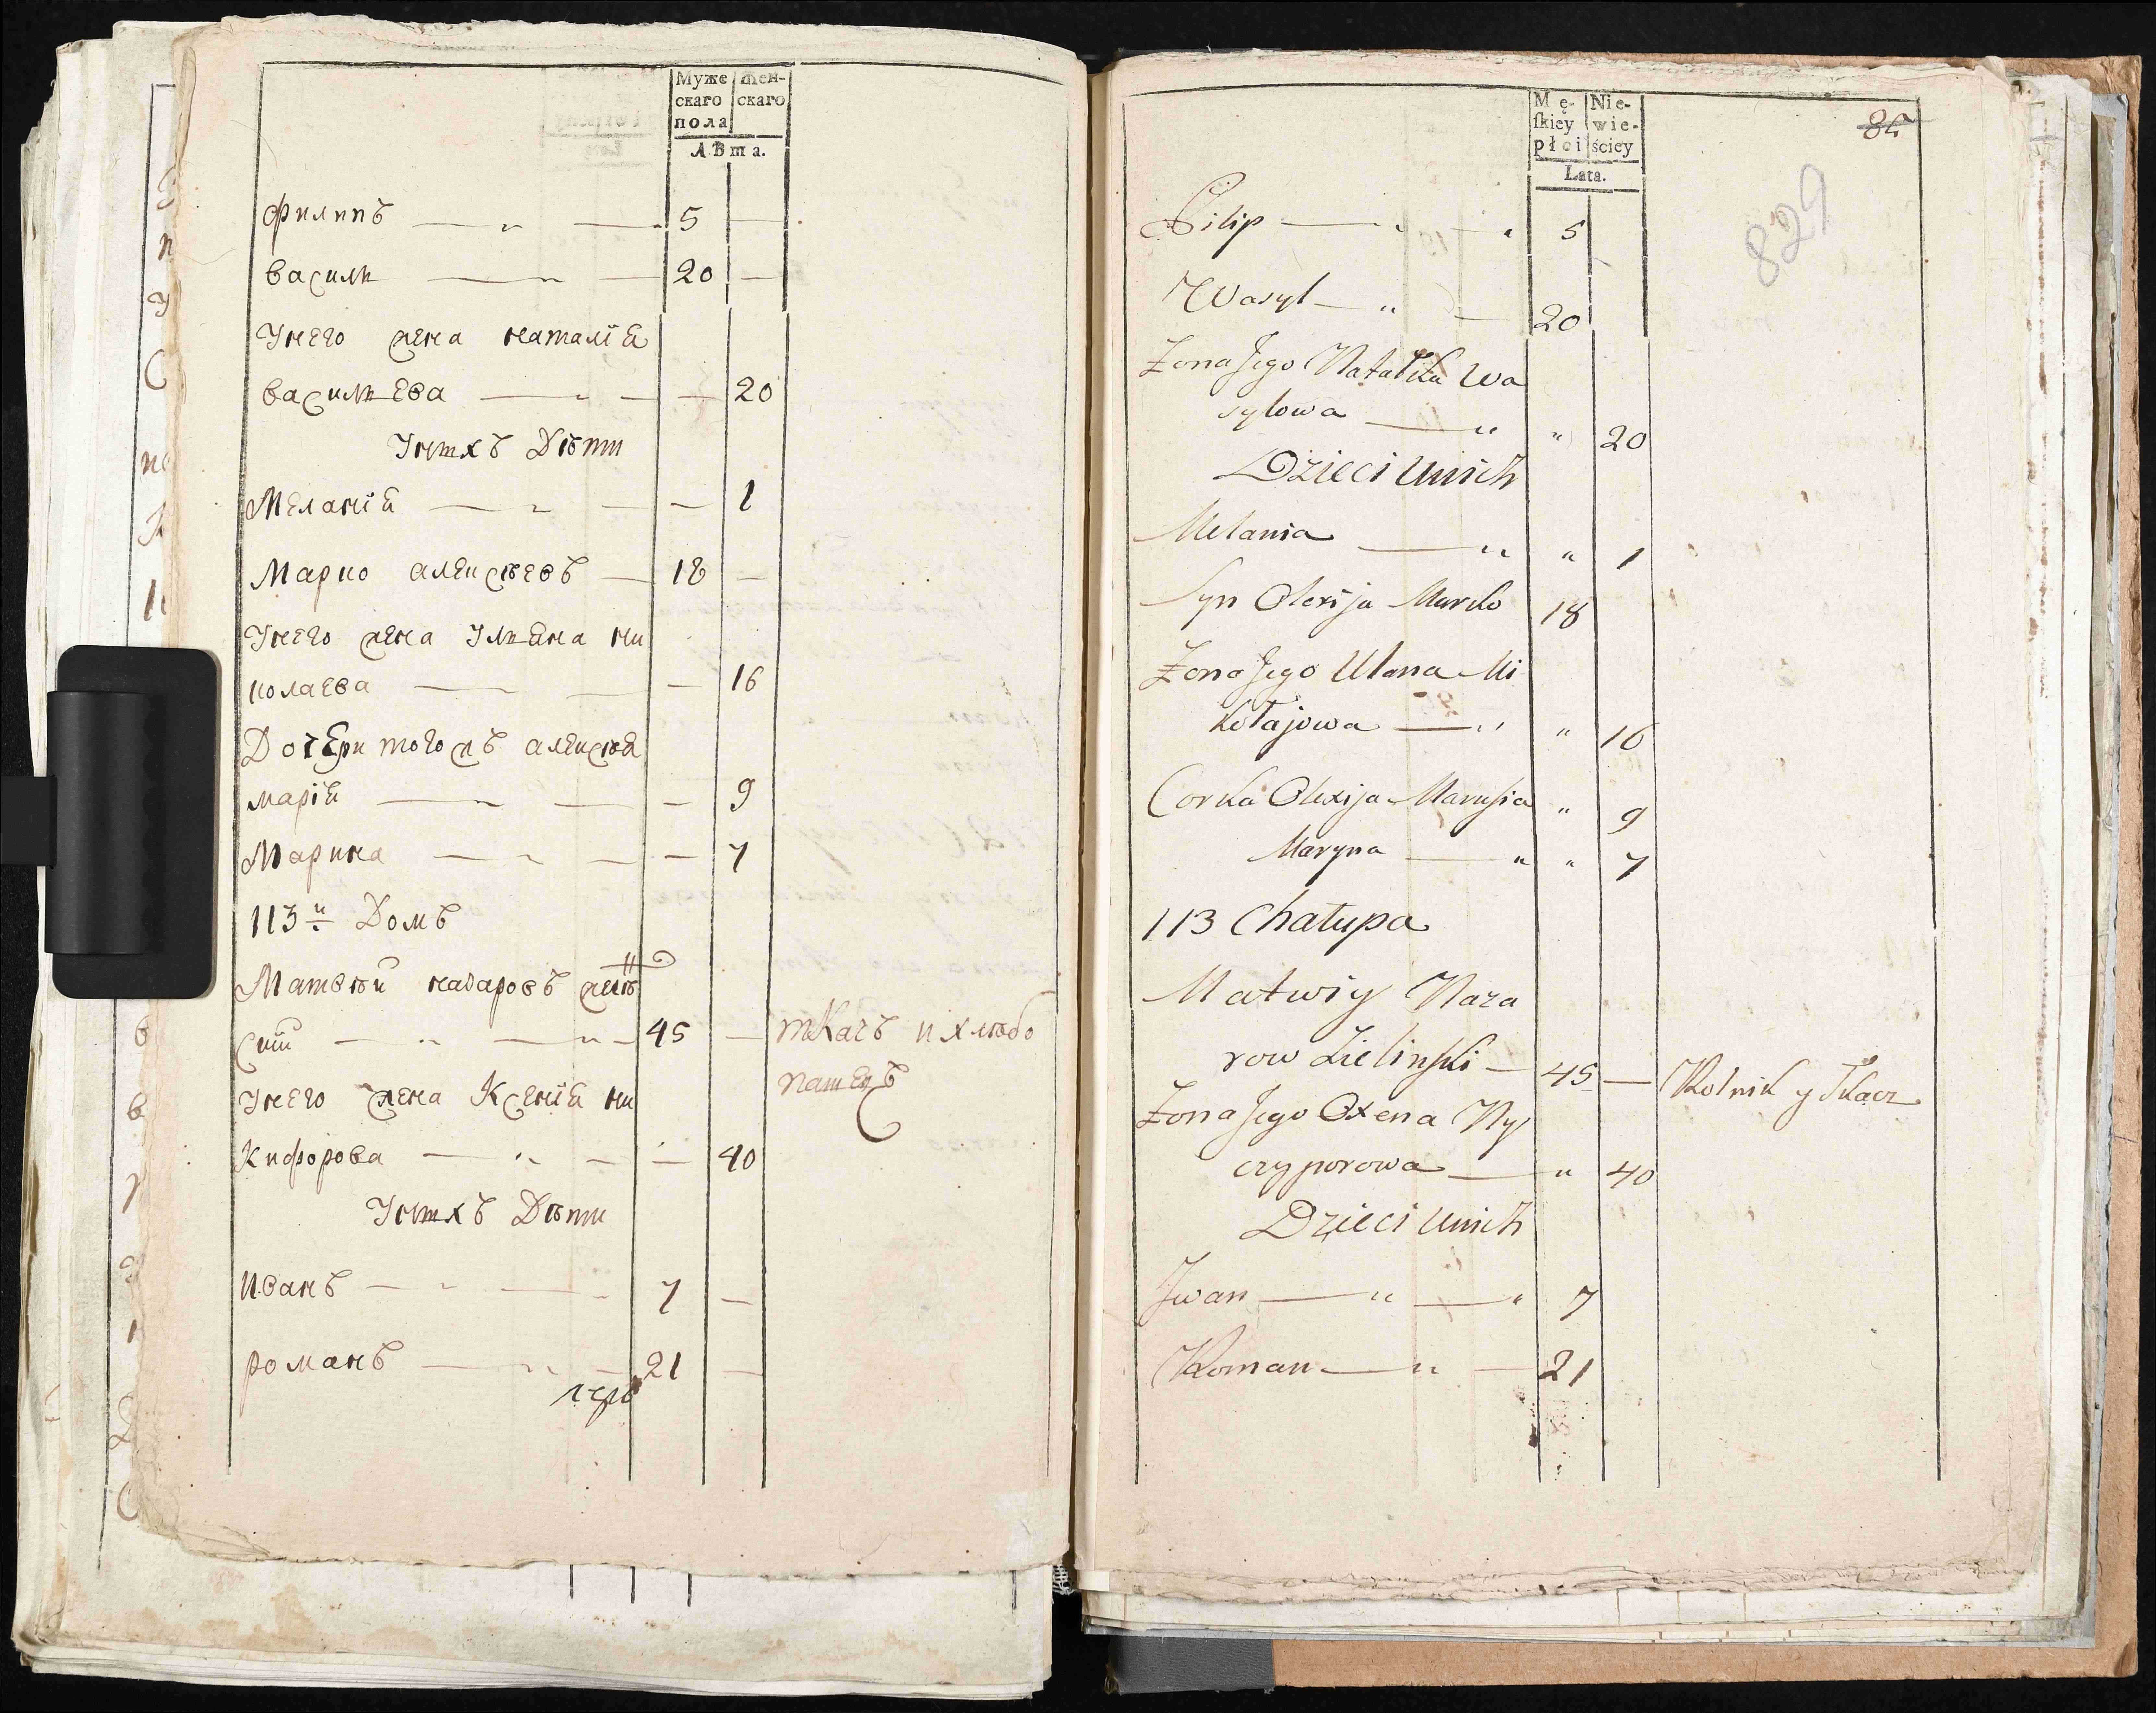 Муже
скаго
пола
Жен-
скаго
Лѣта.
Филипъ 5
василь 20
Унего жена наталія
васильева 20
Унихъ Дѣти
Меланія 1
Марко алексѣевъ 18
Унего жена Ульяна ни
колаева 16
Дочери тогожъ алексѣя
марія 9
Марина 7
113й Домъ
Матвѣй назаровъ
45 ткачъ и хлѣбо
пашецъ
Унего жена Ксенія ни
кифорова 40
Унихъ Дѣти
Иванъ 7
романъ 21
Mę-
skiey
płci
Nie-
wie-
ściey
Lata.
85
829
Filip 5
Wasyl 20
Zona Jego Natalka Wa
sylowa 20
Dzieci Unich
Melania 1
Syn Olexija Marko 18
Zona Jego Ulana Mi
kołajowa 16
Corka Olexija Marusia 9
Maryna 7
113 Chałupa
Matwiy Naza
row Zielinski 45 Rolnik y Tkacz
Zona Jego Oxena Ny
czyporowa 40
Dzieci Unich
Jwan 7
Roman 21